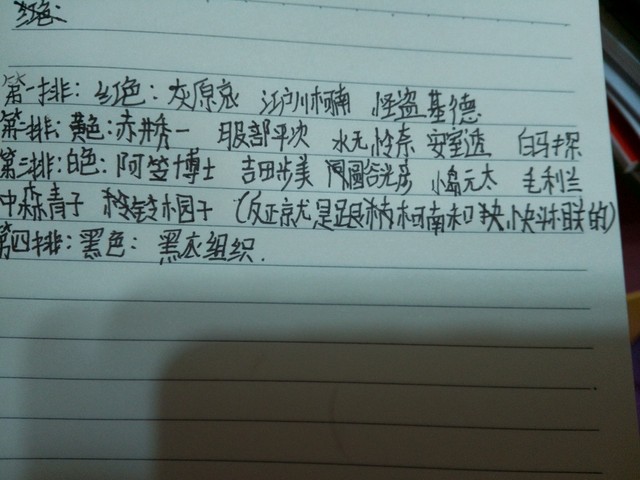 红色:
第一排:红色:灰原哀 江户川柯南 怪盗基德
第二排:黄色:赤井秀一 服部平次 水无怜奈 安室透 白马探
第三排:白色:阿笠博士 吉田步美 圆谷光彦 小岛元太 毛利兰
中森青子 铃木园子 (反正就是跟柯南和快斗联的)
第四排:黑色:黑衣组织.